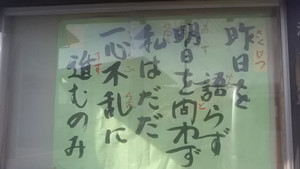 昨日を
語らず
明日を問わず
私はだだ
一心不乱に
進むのみ